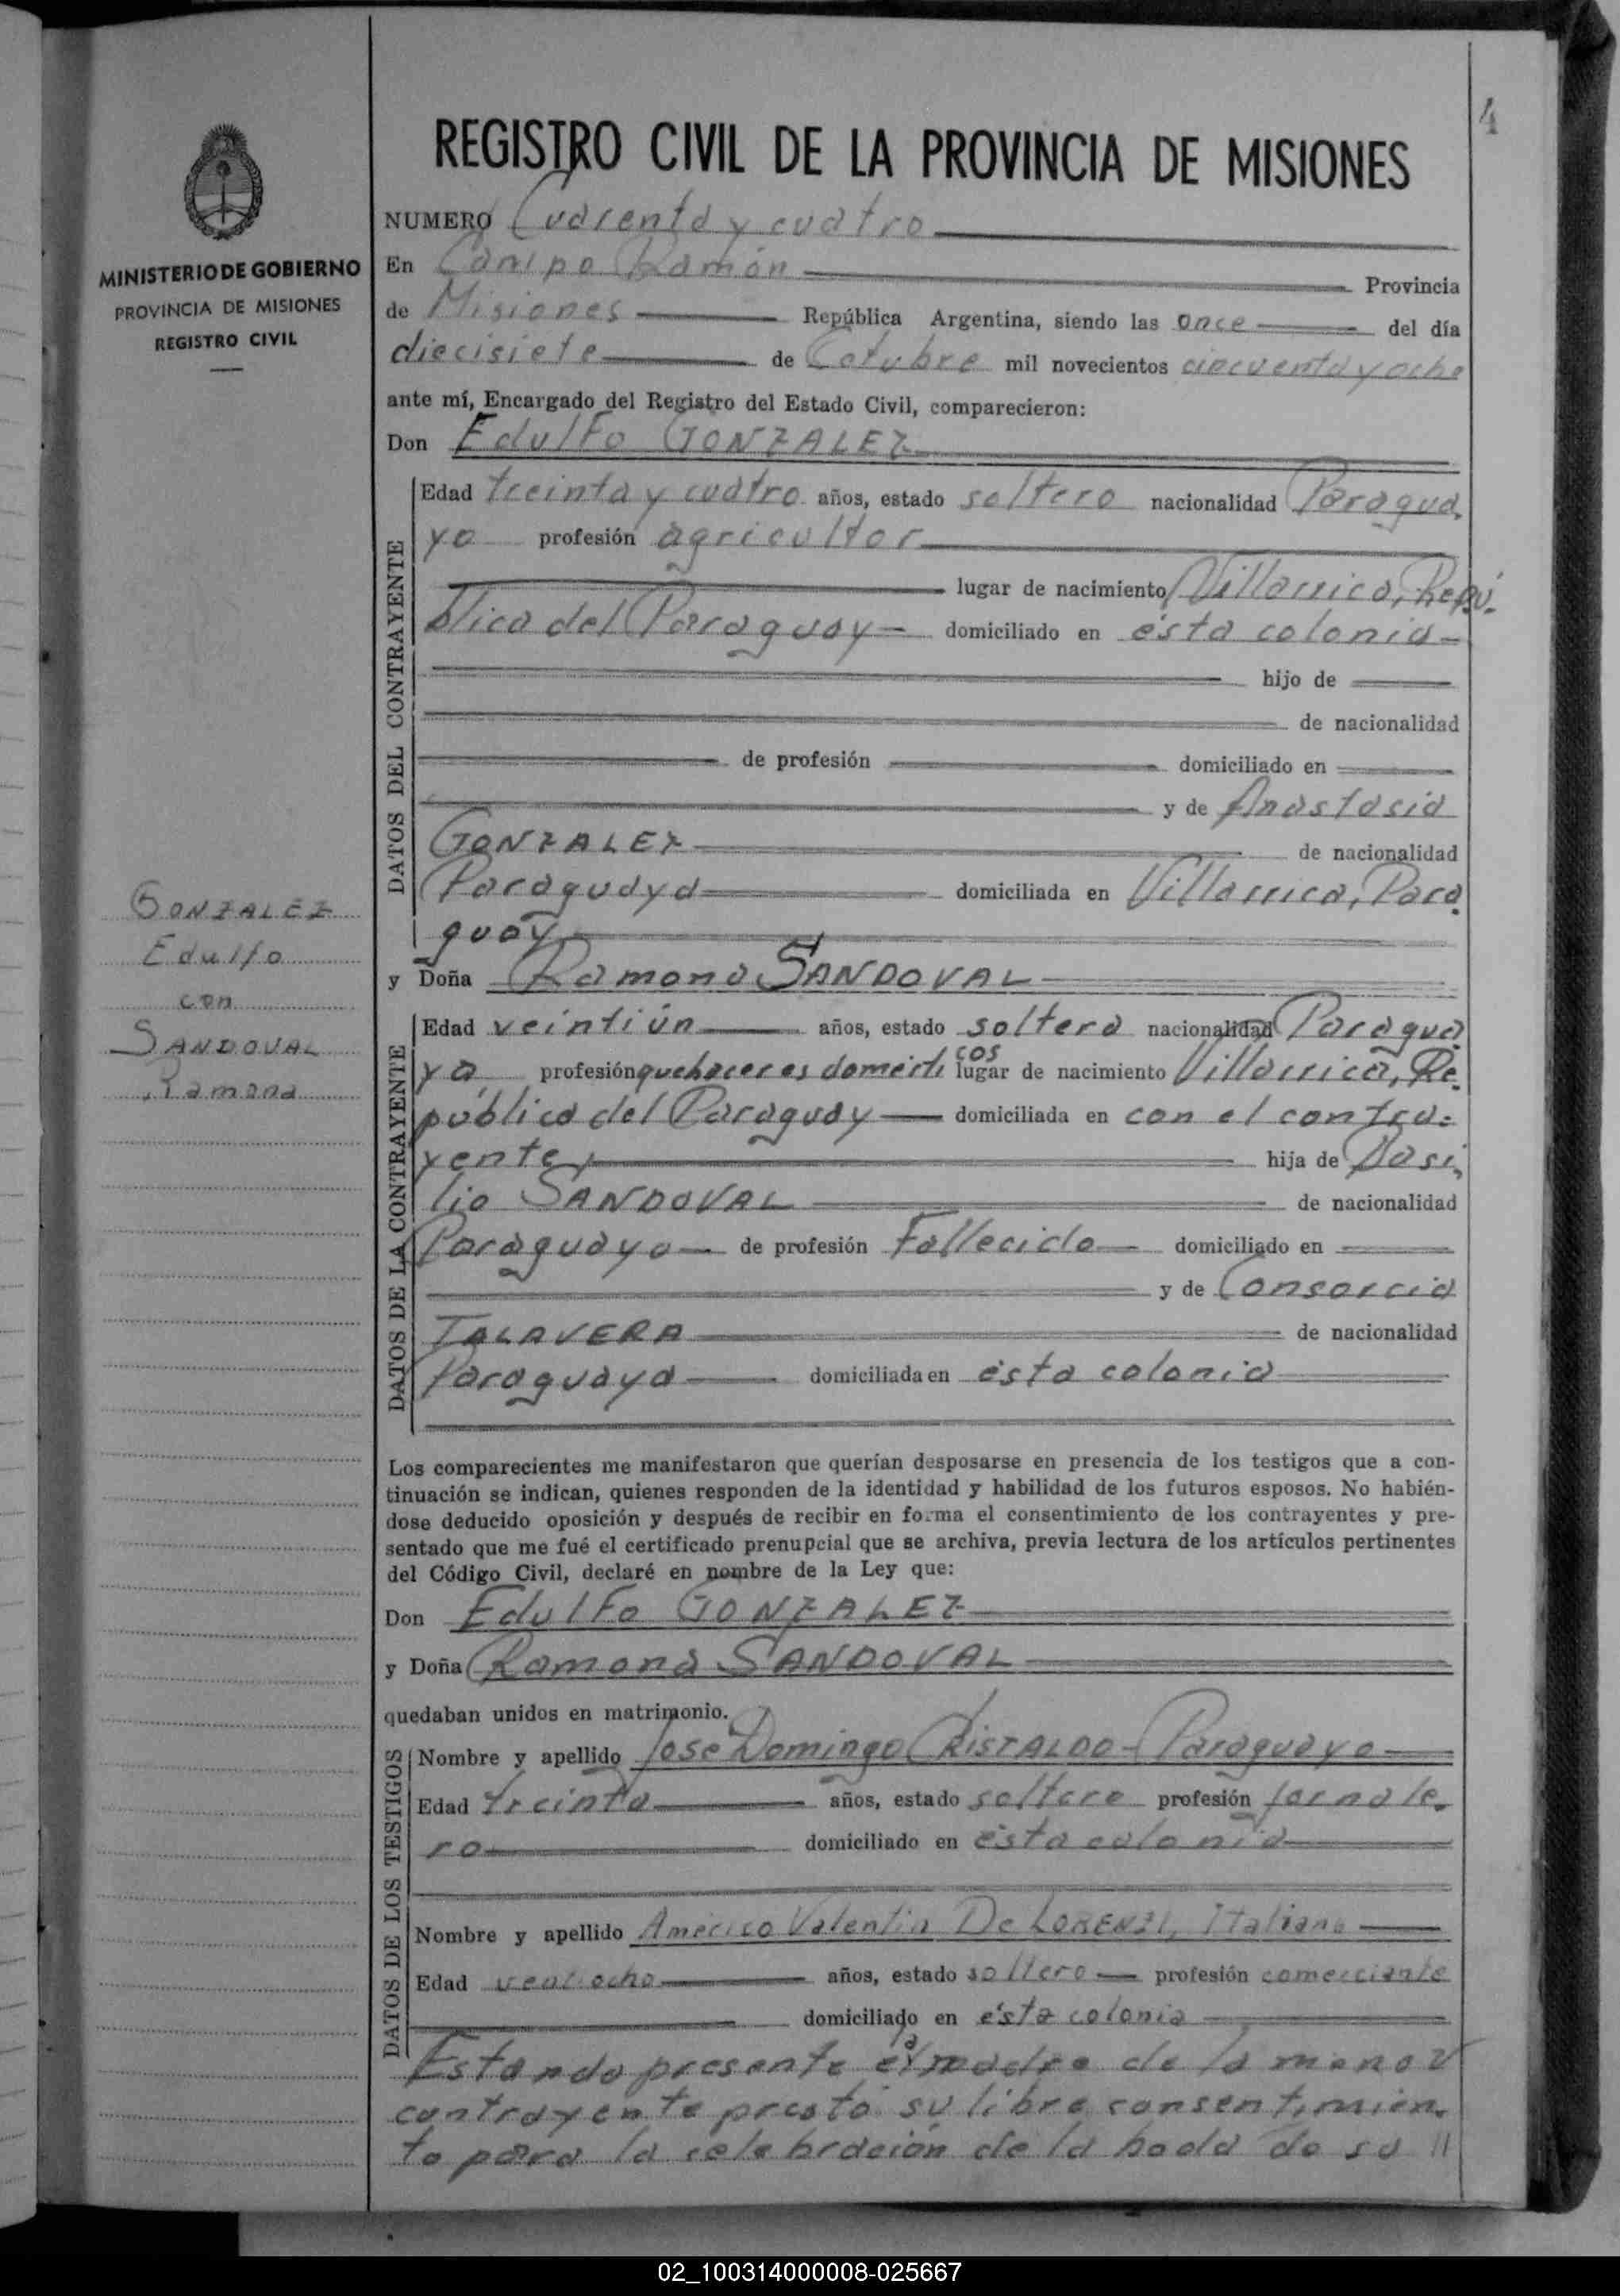 4
REGISTRO CIVIL DE LA PROVINCIA DE MISIONES
MINISTERIO DE GOBIERNO
PROVINCIA DE MISIONES
REGISTRO CIVIL
NUMERO Cuarenta y cuatro
En Campo Ramón Provincia
de Misiones República Argentina, siendo las once del día
diecisiete de Octubre mil novecientos cincuenta y ocho
ante mí, Encargado del Registro del Estado Civil, comparecieron:
Don Edulfo GONZALEZ
DATOS DEL CONTRAYENTE
Edad treinta y cuatro años, estado soltero nacionalidad Paragua
yo profesión agricultor
lugar de nacimiento Villarrica, Repú-
blica del Paraguay domiciliado en ésta colonia
hijo de
de nacionalidad
de profesión domiciliado en
y de Anastasia
GONZALEZ de nacionalidad
Paraguaya domiciliada en Villarrica, Para
guay
GONZALEZ
Edulfo
con
SANDOVAL
Ramona
y Doña Ramona SANDOVAL
DATOS DE LA CONTRAYENTE
Edad veintiún años, estado soltera nacionalidad Paragua
ya profesión quehaceres domésti cos lugar de nacimiento Villarrica, Re-
pública del Paraguay domiciliada en con el contra-
yente, hija de Basi
lio SANDOVAL de nacionalidad
Paraguayo de profesión Fallecido domiciliado en
y de Consorcia
TALAVERA de nacionalidad
Paraguaya domiciliada en ésta colonia
Los comparecientes me manifestaron que querían desposarse en presencia de los testigos que a con-
tinuación se indican, quienes responden de la identidad y habilidad de los futuros esposos. No habién-
dose deducido oposición y después de recibir en forma el consentimiento de los contrayentes y pre-
sentado que me fué el certificado prenupcial que se archiva, previa lectura de los artículos pertinentes
del Código Civil, declaré en nombre de la Ley que:
Don Edulfo GONZALEZ
y Doña Ramona SANDOVAL
quedaban unidos en matrimonio.
DATOS DE LOS TESTIGOS
Nombre y apellido José Domingo RISTALDO - Paraguayo
Edad treinta años, estado soltero profesión jornale-
ro domiciliado en ésta colonia
Nombre y apellido Américo Valentin De LORENZI, Italiano
Edad años, estado soltero profesión comerciante
domiciliado en ésta colonia
Estando presente la madre de la menor
contrayente prestó su libre consentimien-
to para la celebración de la boda de su //
02_100314000008-025667